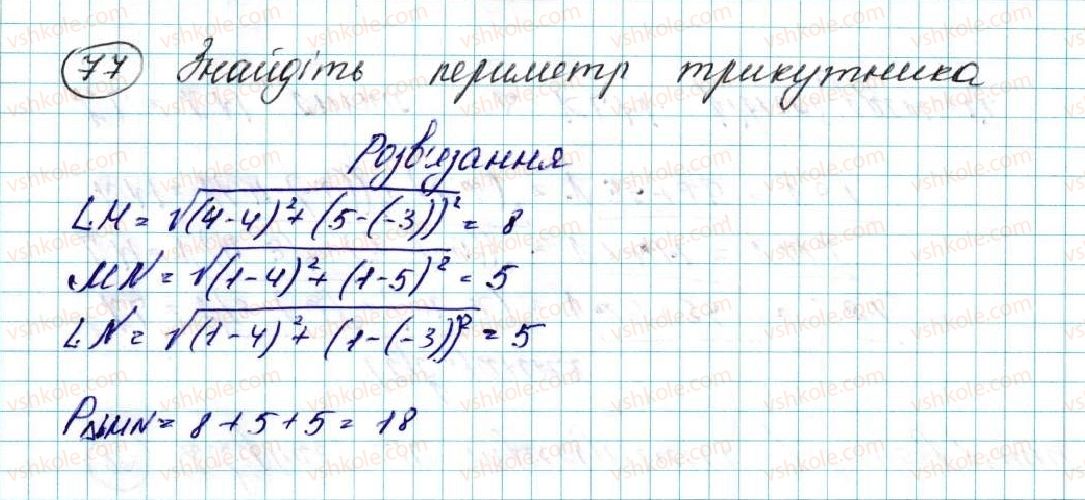 77 Знайдіть периметр трикутника
Розв'язання
LM = √((4-4)²+(5-(-3))²) = 8
MN = √((1-4)²+(1-5)²) = 5
LN = √((1-4)²+(1-(-3))²) = 5
P△LMN = 8+5+5 = 18